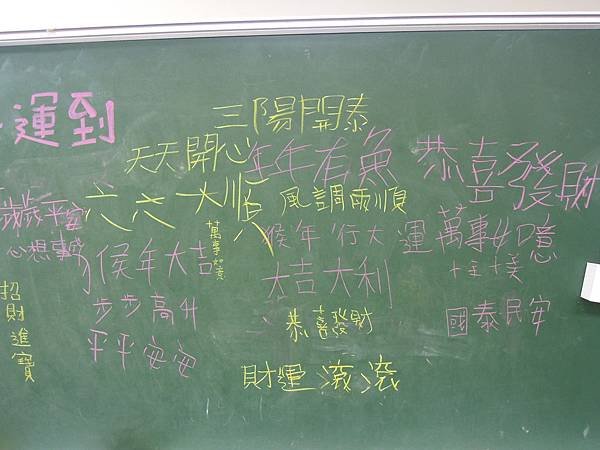 運到
三陽開泰
天天開心
年年有魚
恭喜發財
歲歲平安
六六大順
風調雨順
心想事成
猴年大吉
萬事如意
猴年行大運
萬事如憶
大吉大利
招財進寶
步步高升
恭喜發財
國泰民安
平平安安
財運滾滾